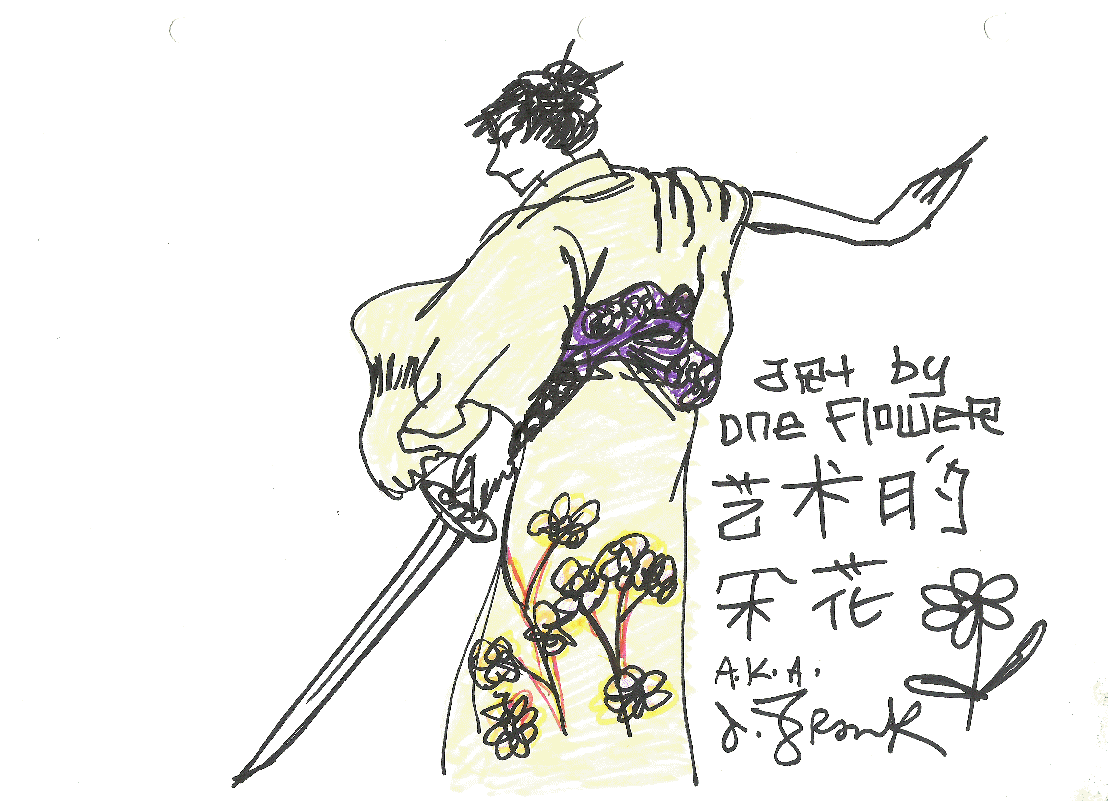 art by
one FlowER
艺术的
朵花
A.K.A.
J. FRank